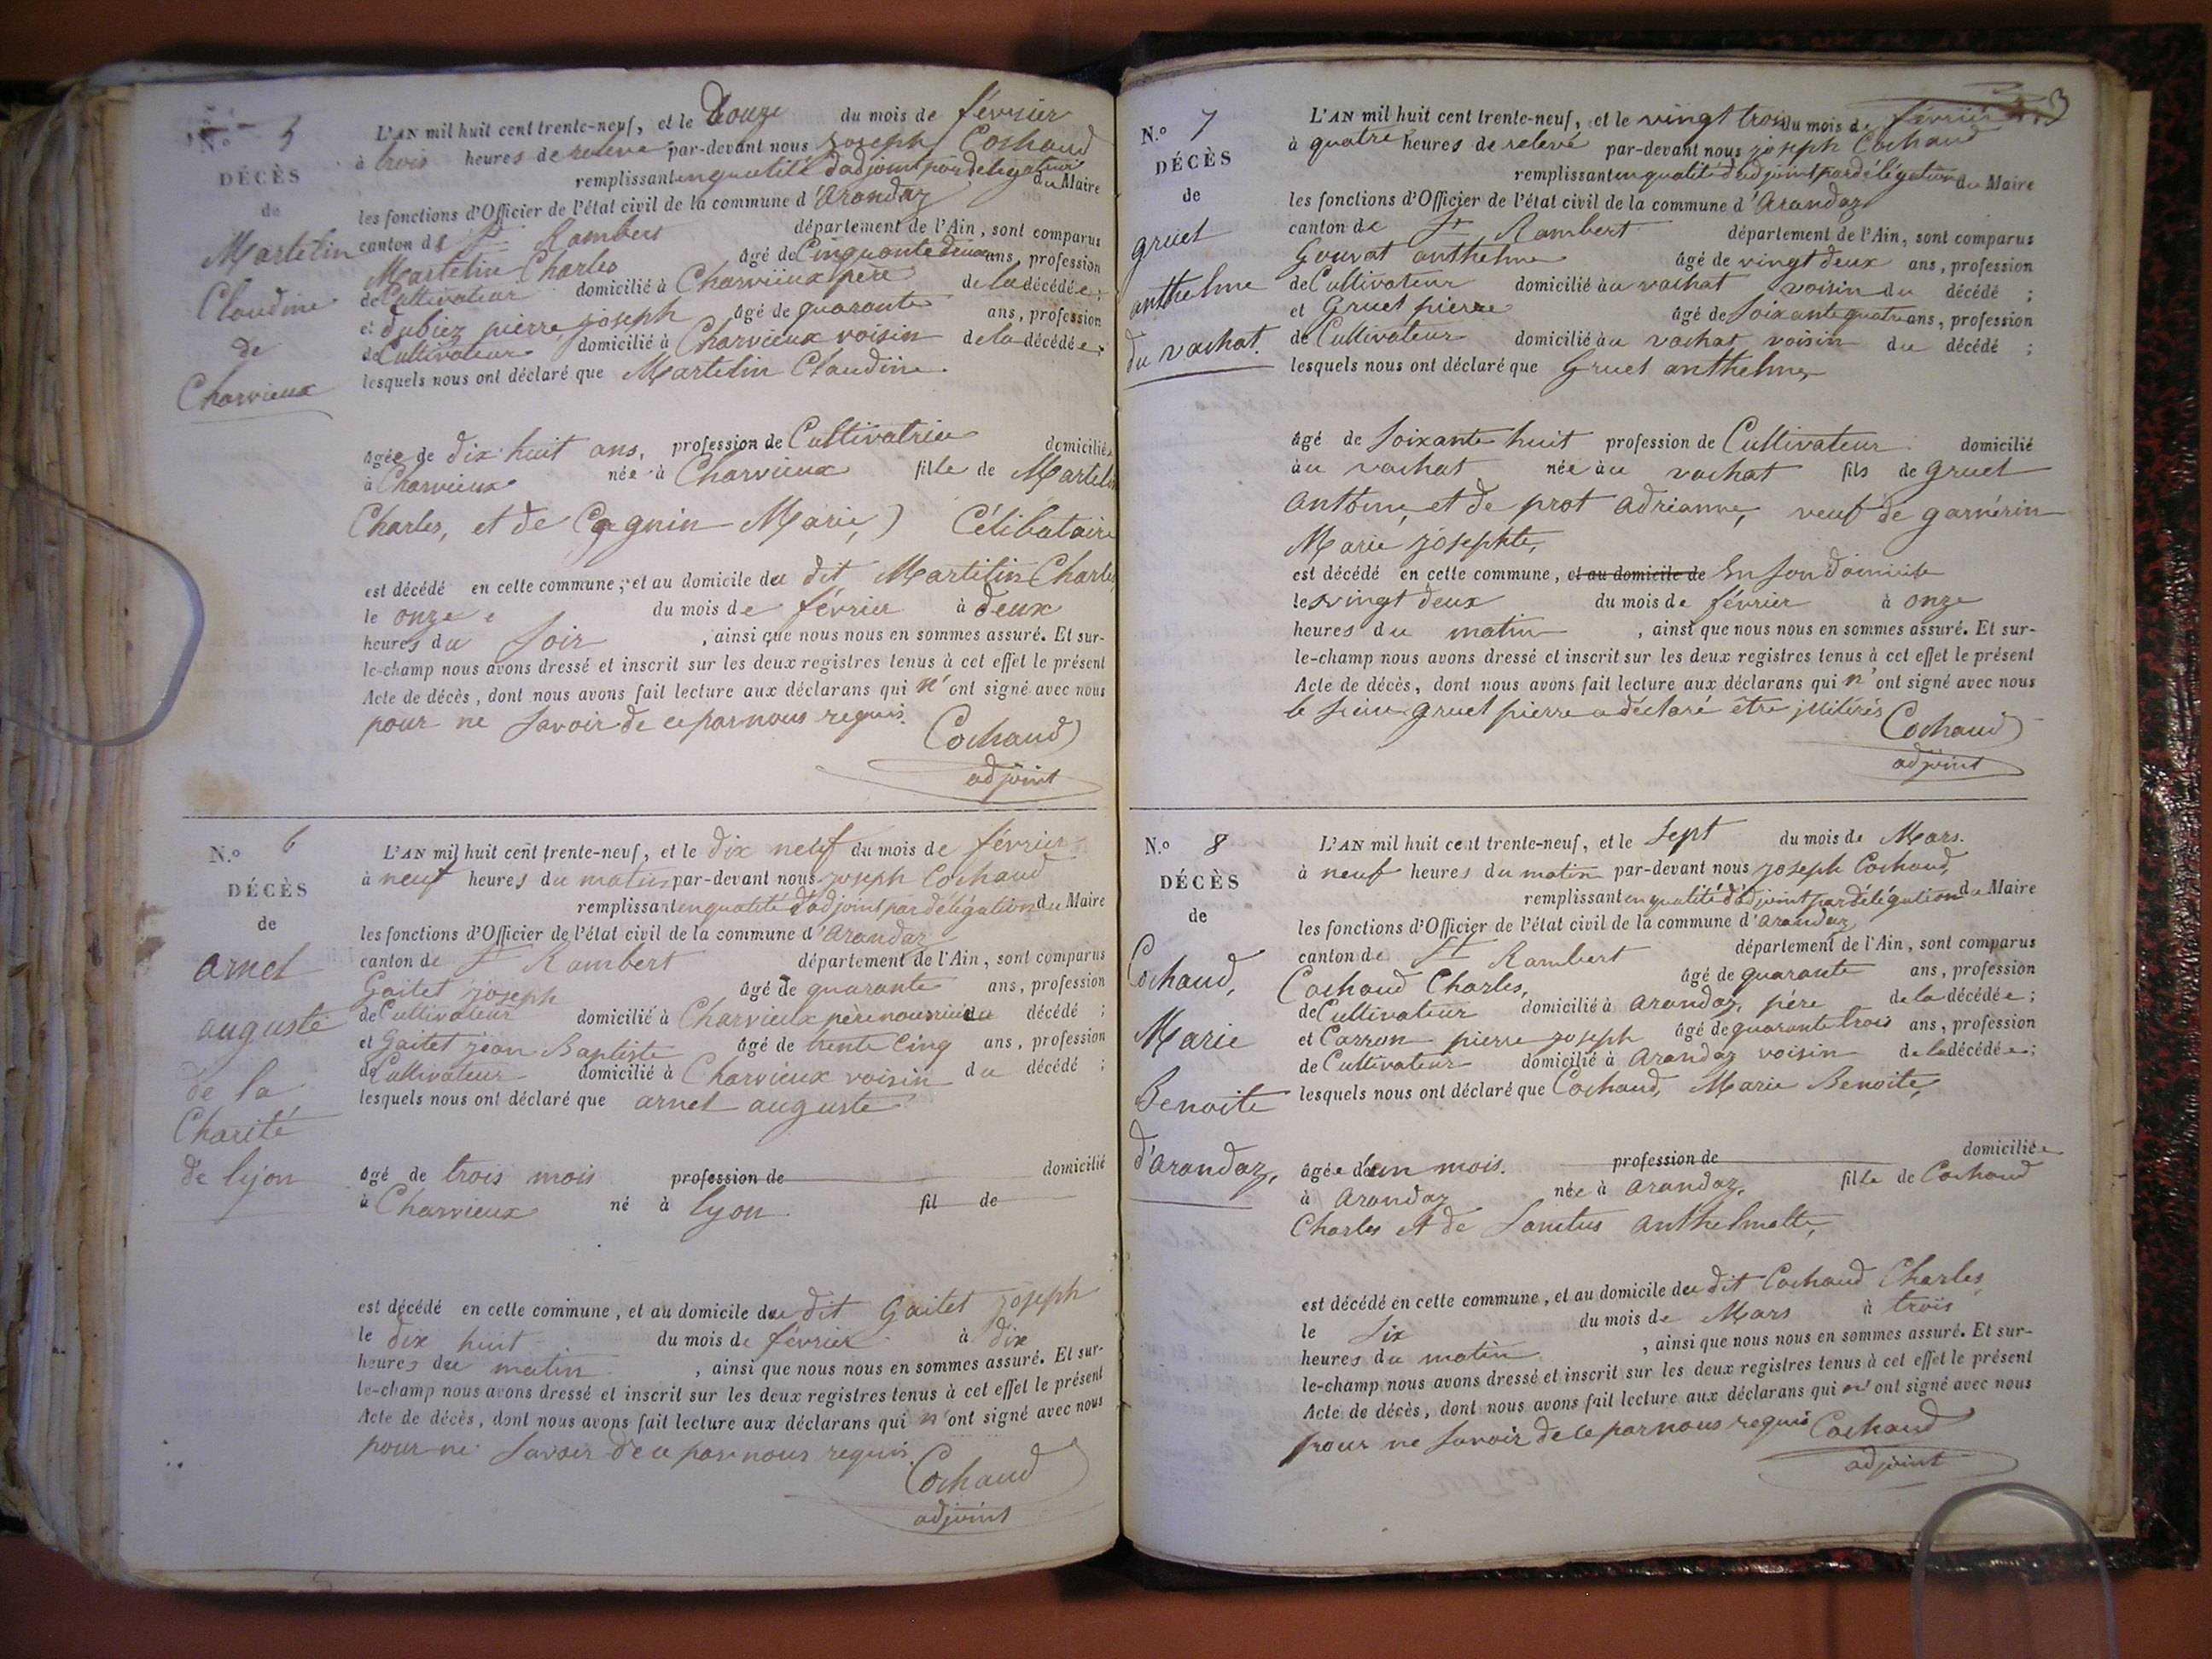 N.º 5
DÉCÈS
de
Martelin
Claudine
de
Charvieux
L'AN mil huit cent trente-neuf, et le Douze du mois de février
à trois heures de relevé par-devant nous joseph Cochaud
remplissant en qualité d'adjoint par délégation du Maire
les fonctions d'Officier de l'état civil de la commune d'Arandaz
canton de St Rambert département de l'Ain, sont comparus
Martelin Charles âgé de Cinquante deux ans, profession
de Cultivateur domicilié à Charvieux père de la décédée ;
et dubiez pierre joseph âgé de quarante ans, profession
de Cultivateur domicilié à Charvieux voisin de la décédée ;
lesquels nous ont déclaré que Martelin Claudine
âgée de dix huit ans, profession de Cultivatrice domiciliée
à Charvieux née à Charvieux fille de Martelin
Charles, et de Cagnin Marie, Célibataire
est décédé en cette commune, et au domicile du dit Martelin Charles
le onze du mois de février à deux
heures du soir , ainsi que nous nous en sommes assuré. Et sur-
le-champ nous avons dressé et inscrit sur les deux registres tenus à cet effet le présent
Acte de décès, dont nous avons fait lecture aux déclarans qui n'ont signé avec nous
pour ne savoir de ce par nous requis.
Cochaud
adjoint
N.º 6
DÉCÈS
de
arnet
auguste
de la
Charité
de lyon
L'AN mil huit cent trente-neuf, et le dix neuf du mois de février
à neuf heures du matin par-devant nous joseph Cochaud
remplissant en qualité d'adjoint par délégation du Maire
les fonctions d'Officier de l'état civil de la commune d'Arandaz
canton de St Rambert département de l'Ain, sont comparus
Gaitet joseph âgé de quarante ans, profession
de Cultivateur domicilié à Charvieux père nourricier du décédé ;
et Gaitet jean Baptiste âgé de trente Cinq ans, profession
de Cultivateur domicilié à Charvieux voisin du décédé ;
lesquels nous ont déclaré que arnet auguste
agé de trois mois profession de domicilié
à Charvieux né à lyon fil de
est décédé en cette commune, et au domicile du dit Gaitet joseph
le dix huit du mois de février à dix
heures du matin , ainsi que nous nous en sommes assuré. Et sur-
le-champ nous avons dressé et inscrit sur les deux registres tenus à cet effet le présent
Acte de décès, dont nous avons fait lecture aux déclarans qui n'ont signé avec nous
pour ne savoir de ce par nous requis.
Cochaud
adjoint
3
N.º 7
DÉCÈS
de
gruet
anthelme
du vachat.
L'AN mil huit cent trente-neuf, et le vingt trois du mois de février
à quatre heures de relevé par-devant nous joseph Cochaud
remplissant en qualité d'adjoint par délégation du Maire
les fonctions d'Officier de l'état civil de la commune d'Arandaz
canton de St Rambert département de l'Ain, sont comparus
Gouvat anthelme âgé de vingt deux ans, profession
de Cultivateur domicilié au vachat voisin du décédé ;
et Gruet pierre âgé de soixante quatre ans, profession
de Cultivateur domicilié au vachat voisin du décédé ;
lesquels nous ont déclaré que Gruet anthelme,
âgé de soixante huit profession de Cultivateur domicilié
au vachat née au vachat fils de gruet
Antoine, et de prot adrianne, veuf de garnérin
Marie josephte,
est décédé en cette commune, et au domicile de En son domicile
le vingt deux du mois de février à onze
heures du matin , ainsi que nous nous en sommes assuré. Et sur-
le-champ nous avons dressé et inscrit sur les deux registres tenus à cet effet le présent
Acte de décès, dont nous avons fait lecture aux déclarans qui n'ont signé avec nous
le sieur gruet pierre a déclaré être jllitérés
Cochaud
adjoint
N.º 8
DÉCÈS
de
Cochaud,
Marie
Benoite
d'arandaz,
L'AN mil huit cent trente-neuf, et le sept du mois de Mars.
à neuf heures du matin par-devant nous joseph Cochaud,
remplissant en qualité d'adjoint par délégation du Maire
les fonctions d'Officier de l'état civil de la commune d'arandaz
canton de St Rambert département de l'Ain, sont comparus
Cochaud Charles, âgé de quarante ans, profession
de Cultivateur domicilié à arandaz, père de la décédée ;
et Carron pierre joseph âgé de quarante trois ans, profession
de Cultivateur domicilié à Arandaz voisin de la décédée ;
lesquels nous ont déclaré que Cochaud, Marie Benoite,
âgée d'un mois. profession de domiciliée
à arandaz née à arandaz, fille de Cochaud
Charles et de Sanctus anthelmette,
est décédé en cette commune, et au domicile du dit Cochaud Charles
le six du mois de Mars à trois
heures du matin , ainsi que nous nous en sommes assuré. Et sur-
le-champ nous avons dressé et inscrit sur les deux registres tenus à cet effet le présent
Acte de décès, dont nous avons fait lecture aux déclarans qui n'ont signé avec nous
pour ne savoir de ce par nous requis
Cochaud
adjoint